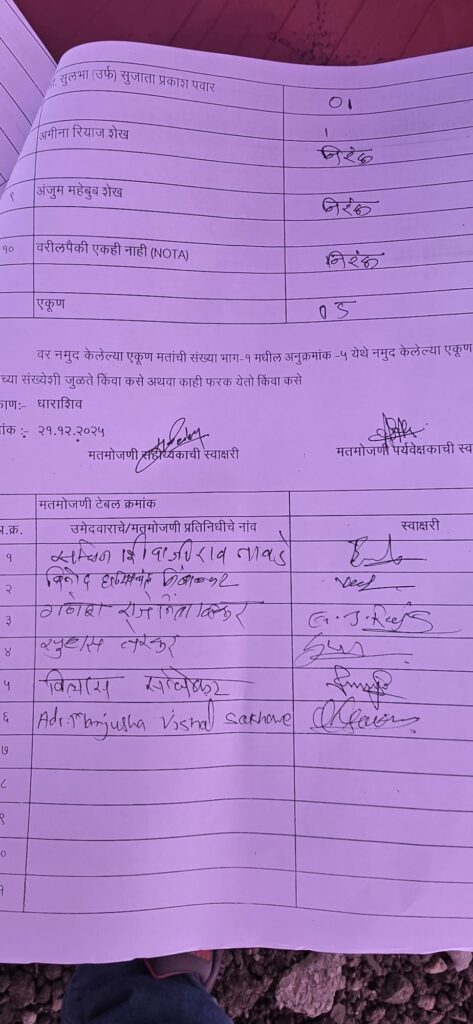 सुलभा (उर्फ) सुजाता प्रकाश पवार
01
अमीना रियाज शेख
निरंक
९ अंजुम महेबुब शेख
निरंक
१० वरीलपैकी एकही नाही (NOTA)
निरंक
एकूण
05
वर नमुद केलेल्या एकूण मतांची संख्या भाग-१ मधील अनुक्रमांक -५ येथे नमुद केलेल्या एकूण
च्या संख्येशी जुळते किंवा कसे अथवा काही फरक येतो किंवा कसे
काण:- धाराशिव
ांक :- २१.१२.२०२५
मतमोजणी सहाय्यकाची स्वाक्षरी मतमोजणी पर्यवेक्षकाची स्वा
मतमोजणी टेबल क्रमांक
अ.क्र. उमेदवाराचे/मतमोजणी प्रतिनिधीचे नांव स्वाक्षरी
१ शिवाजीराव
२ विनोद
३ गणेश
४ सुहास
५ विलास
६ Adv. Manjusha Vishal Sakhare
७
८
९
०
१